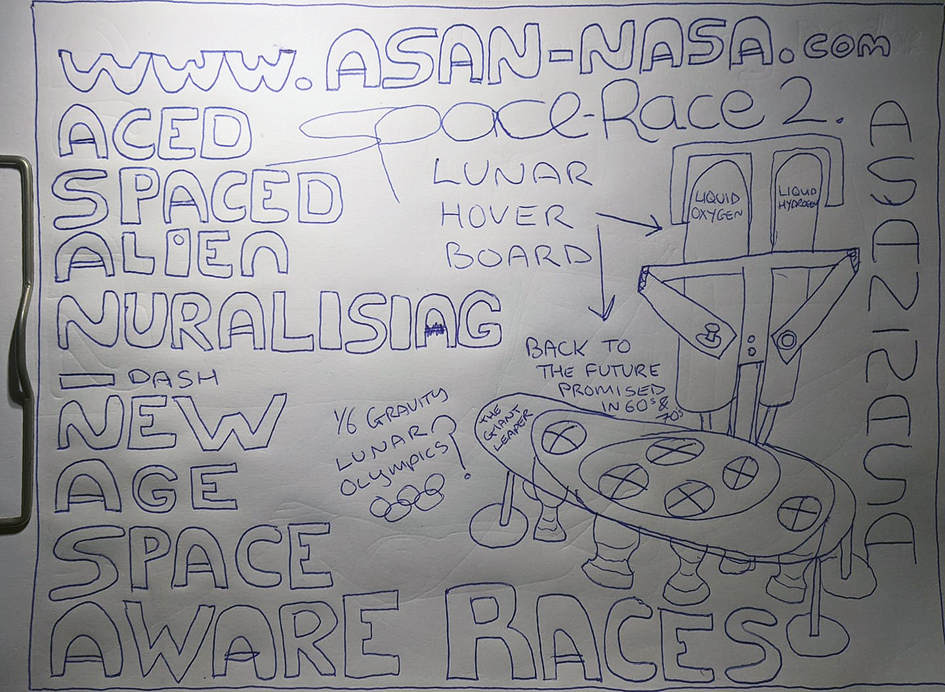 www.ASAN-NASA.com
Space-Race 2.
ACED
SPACED
ALIEn
NURALISIAG
— DASH
NEW
AGE
SPACE
AWARE RACES
LUNAR
HOVER
BOARD
LIQUID
OXYGEN
LIQUID
HYDROGEN
BACK TO
THE FUTURE
PROMISED
IN 60s &
70s
THE
GIANT
LEAPER
1/6 GRAVITY
LUNAR
OLYMPICS?!